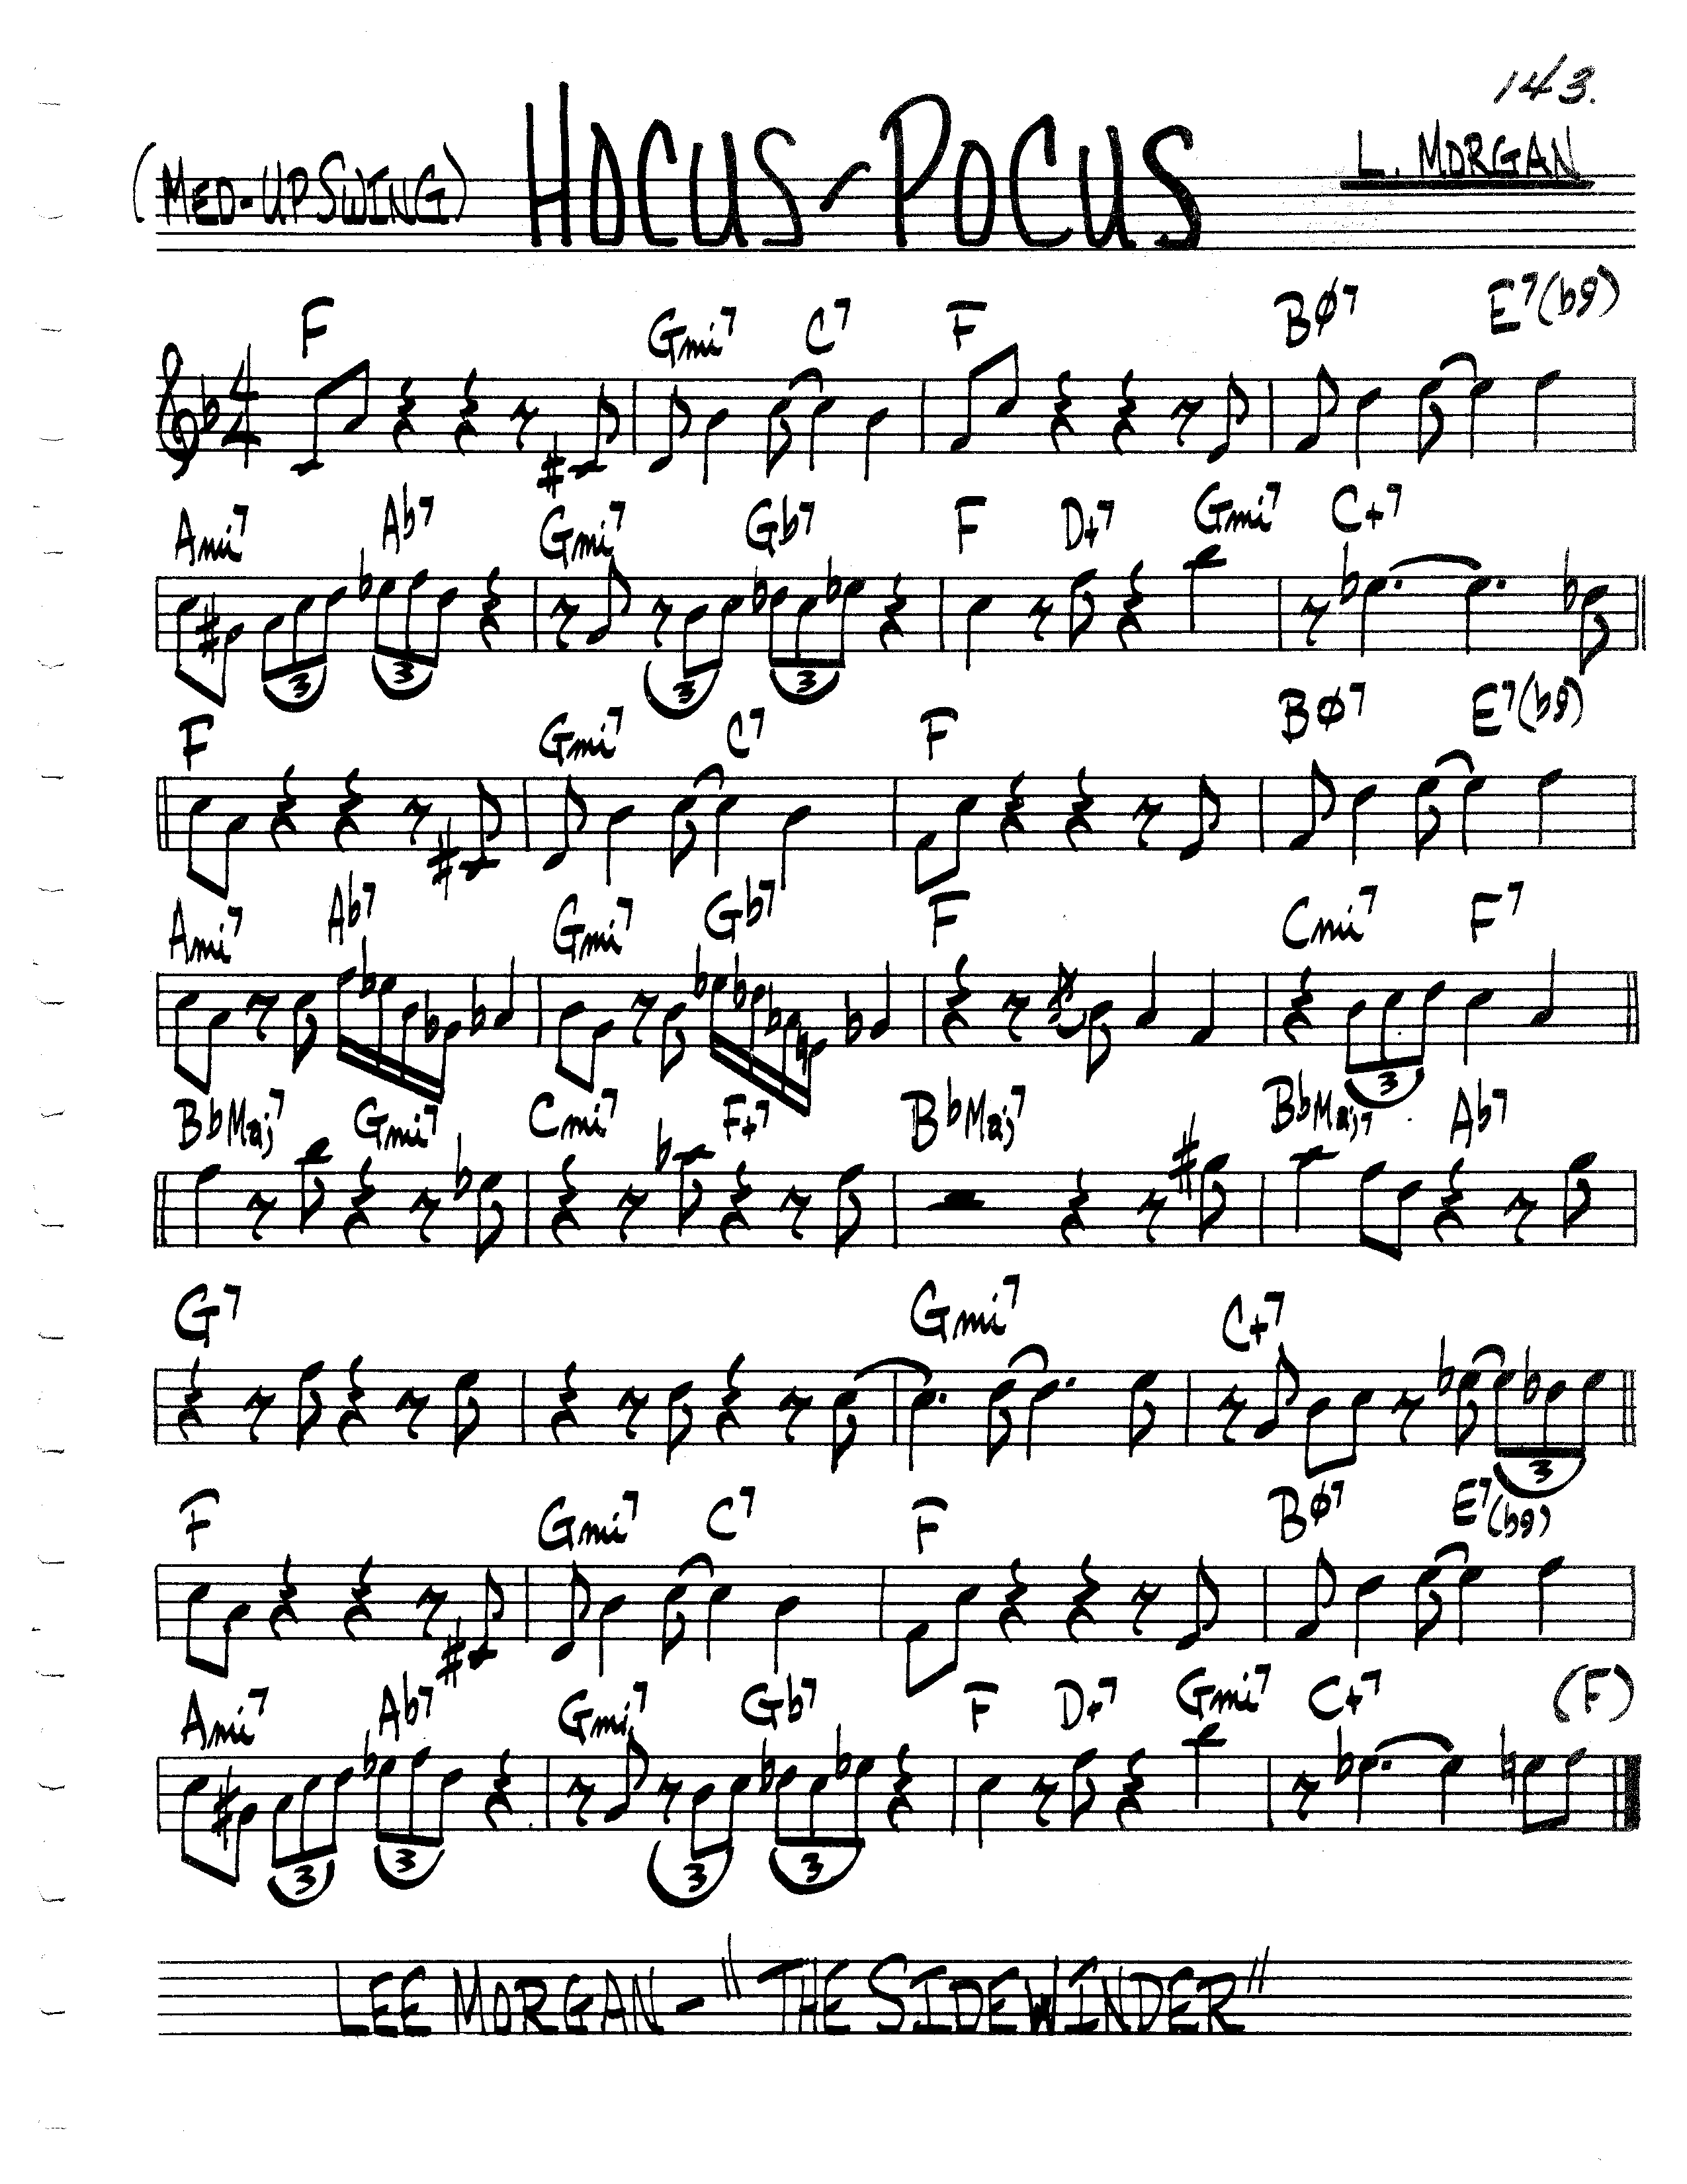 143.
(MED-UP SWING) HOCUS-POCUS L. MORGAN
F Gmi7 C7 F Bø7 E7(b9)
4
4
Ami7 Ab7 Gmi7 Gb7 F D+7 Gmi7 C+7
3 3 3 3
F Gmi7 C7 F Bø7 E7(b9)
Ami7 Ab7 Gmi7 Gb7 F Cmi7 F7
3
BbMaj7 Gmi7 Cmi7 F+7 BbMaj7 BbMaj7 Ab7
G7 Gmi7 C+7
3
F Gmi7 C7 F Bø7 E7(b9)
Ami7 Ab7 Gmi7 Gb7 F D+7 Gmi7 C+7 (F)
3 3 3 3
LEE MORGAN - "THE SIDEWINDER"